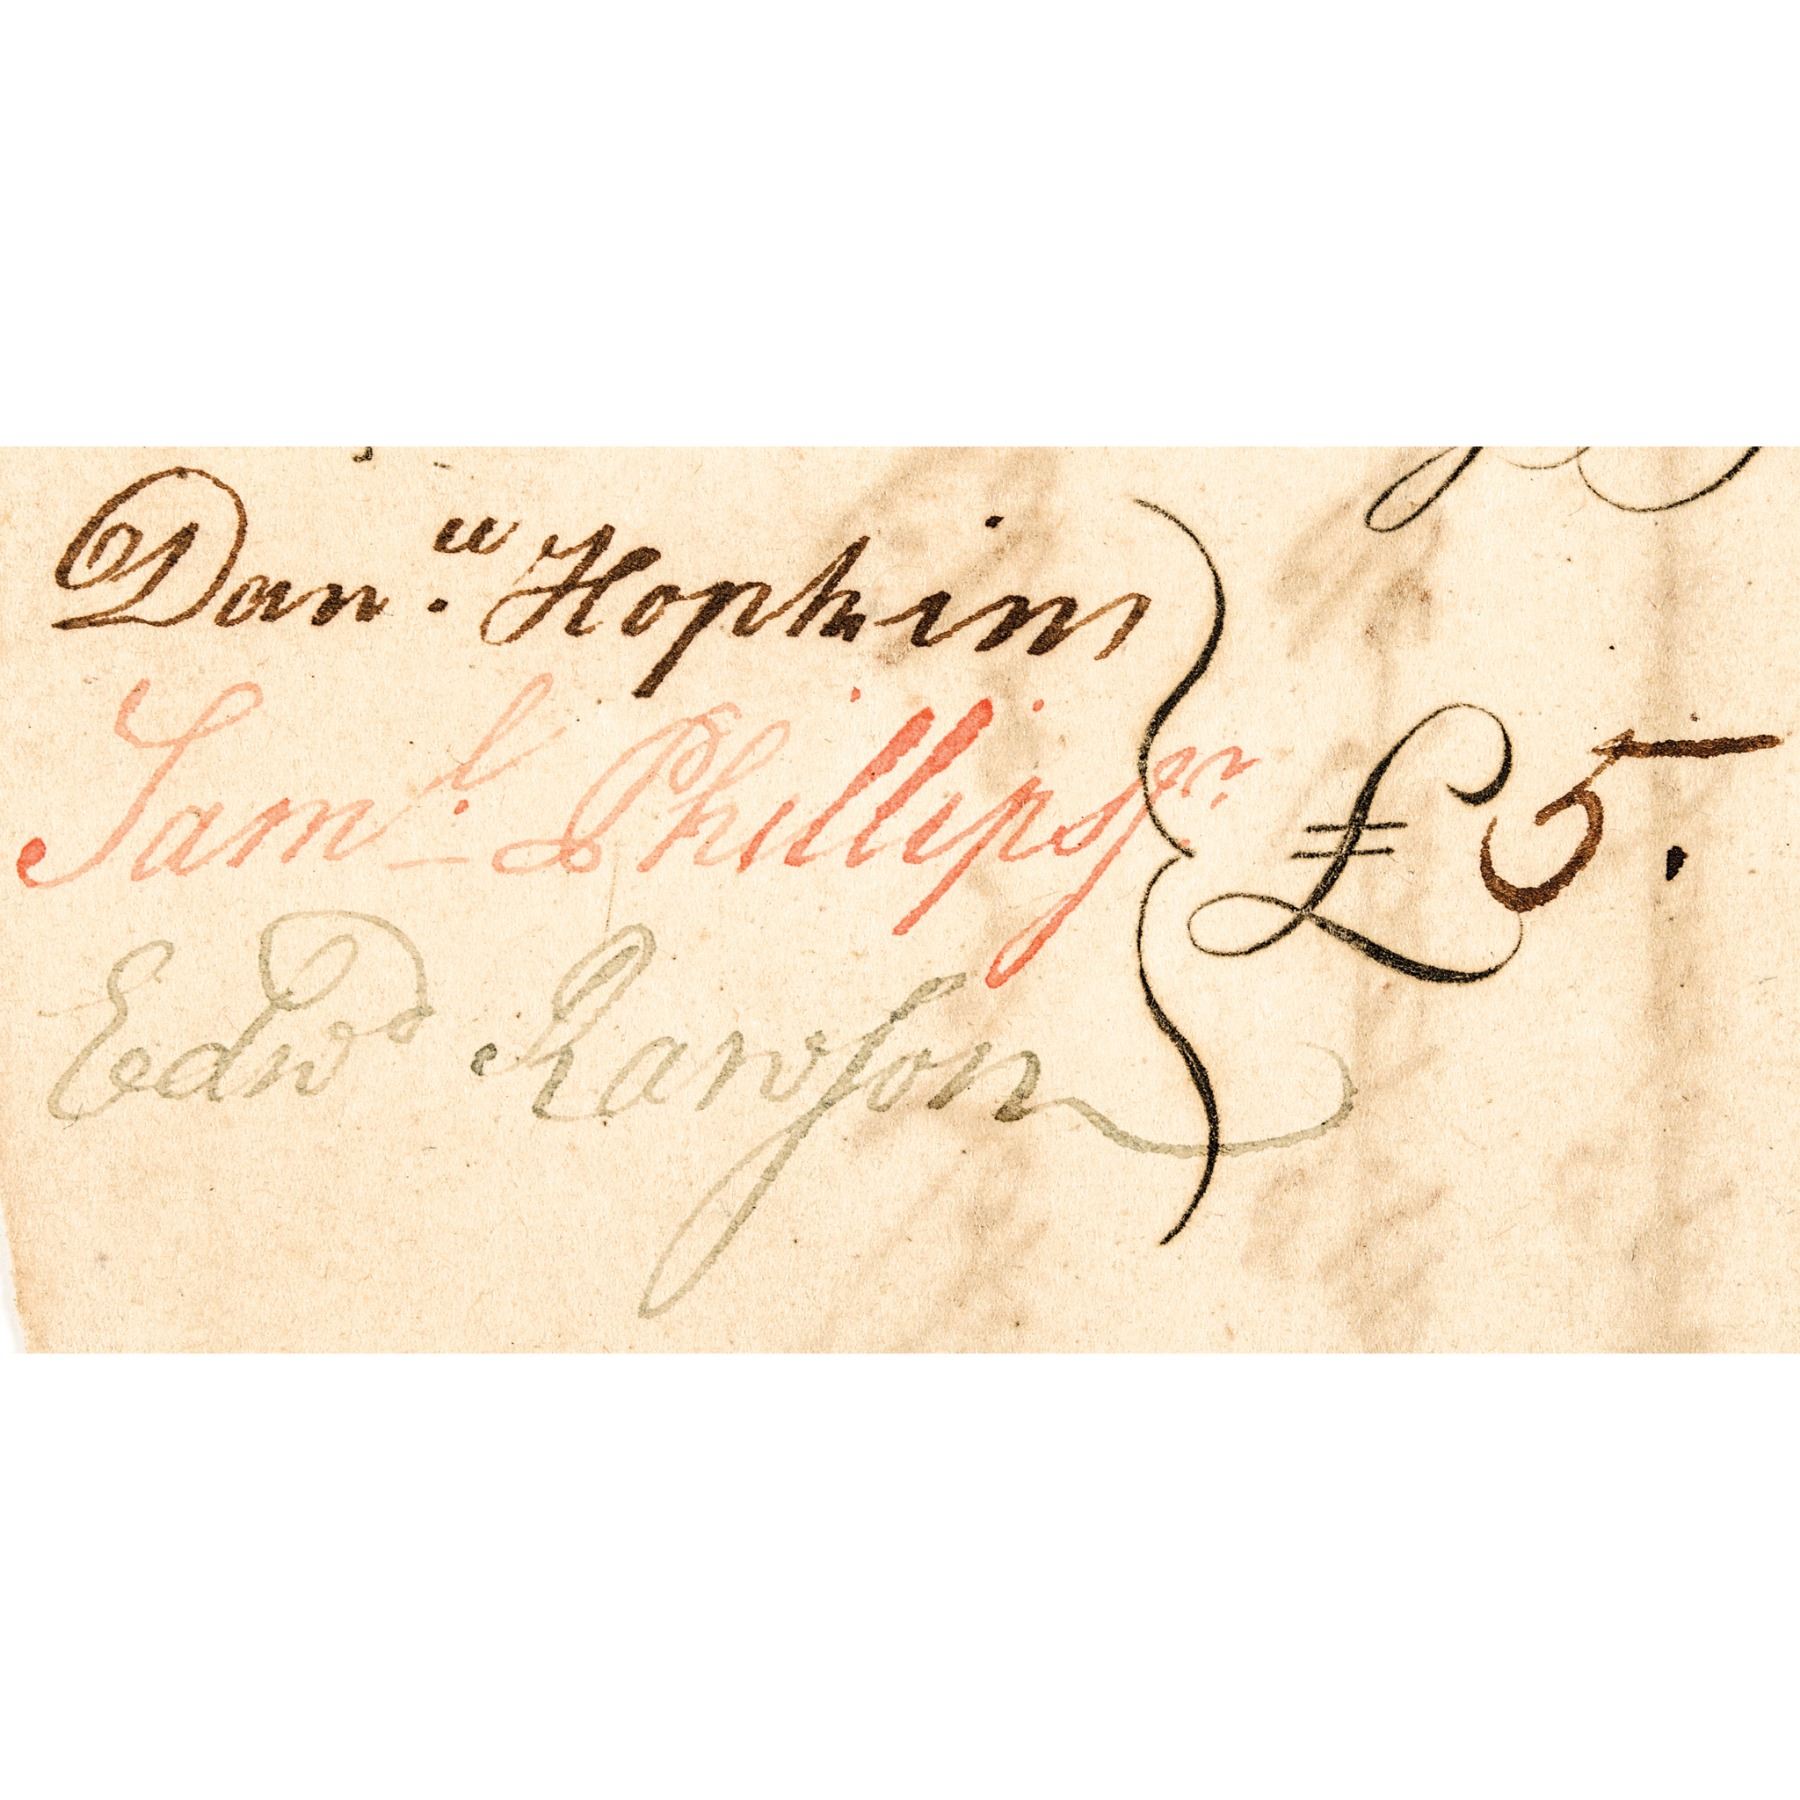 Dan.ˡˡ Hopkins
Samˡ. Phillips Jʳ
£5.
Edwᵈ Rawson